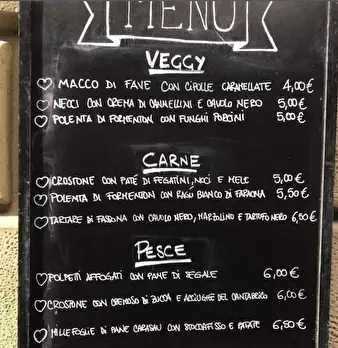 MENÙ
VEGGY
MACCO DI FAVE CON CIPOLLE CARAMELLATE 4,00€
NECCI CON CREMA DI CANNELLINI E CAVOLO NERO 5,00€
POLENTA DI FORMENTON CON FUNGHI PORCINI 5,00€
CARNE
CROSTONE CON PATÉ DI FEGATINI, NOCI E MELE 5,00€
POLENTA DI FORMENTON CON RAGÙ BIANCO DI FARAONA 5,50€
TARTARE DI FASSONA CON CAVOLO NERO, MARZOLINO E TARTUFO NERO 6,50€
PESCE
POLPETTI AFFOGATI CON PANE DI SEGALE 6,00€
CROSTONE CON CREMOSO DI ZUCCA E ACCIUGHE DEL CANTABRICO 6,00€
MILLEFOGLIE DI PANE CARASAU CON STOCCAFISSO E PATATE 6,50€